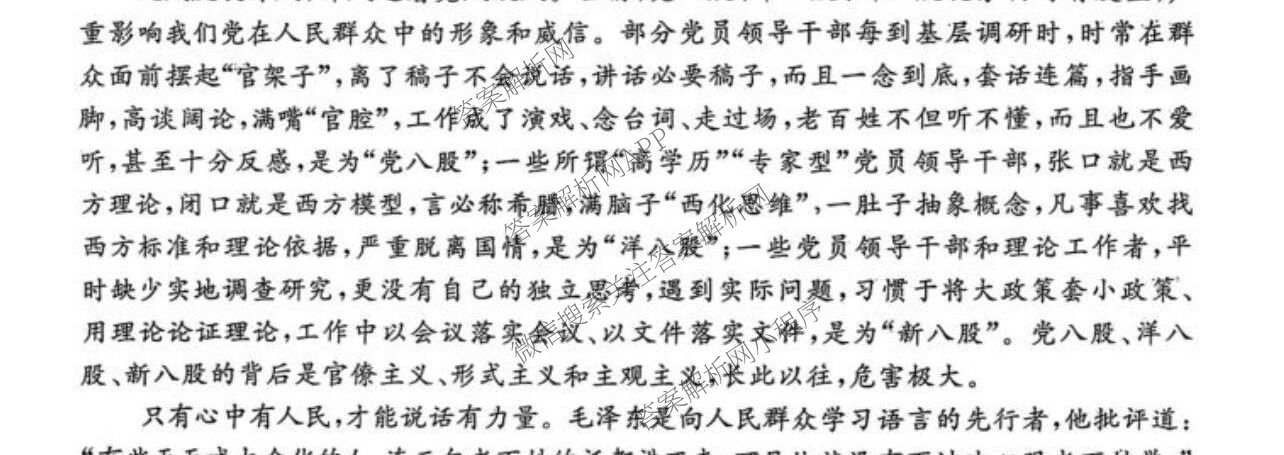 重影响我们党在人民群众中的形象和威信。部分党员领导干部每到基层调研时,时常在群
众面前摆起“官架子”,离了稿子不会说话,讲话必要稿子,而且一念到底,套话连篇,指手画
脚,高谈阔论,满嘴“官腔”,工作成了演戏、念台词、走过场,老百姓不但听不懂,而且也不爱
听,甚至十分反感,是为“党八股”;一些所谓“高学历”“专家型”党员领导干部,张口就是西
方理论,闭口就是西方模型,言必称希腊,满脑子“西化思维”,一肚子抽象概念,凡事喜欢找
西方标准和理论依据,严重脱离国情,是为“洋八股”;一些党员领导干部和理论工作者,平
时缺少实地调查研究,更没有自己的独立思考,遇到实际问题,习惯于将大政策套小政策、
用理论论证理论,工作中以会议落实会议、以文件落实文件,是为“新八股”。党八股、洋八
股、新八股的背后是官僚主义、形式主义和主观主义,长此以往,危害极大。
只有心中有人民,才能说话有力量。毛泽东是向人民群众学习语言的先行者,他批评道:
答案解析网
答案解析网APP
微信搜索关注答案解析网
答案解析网小程序